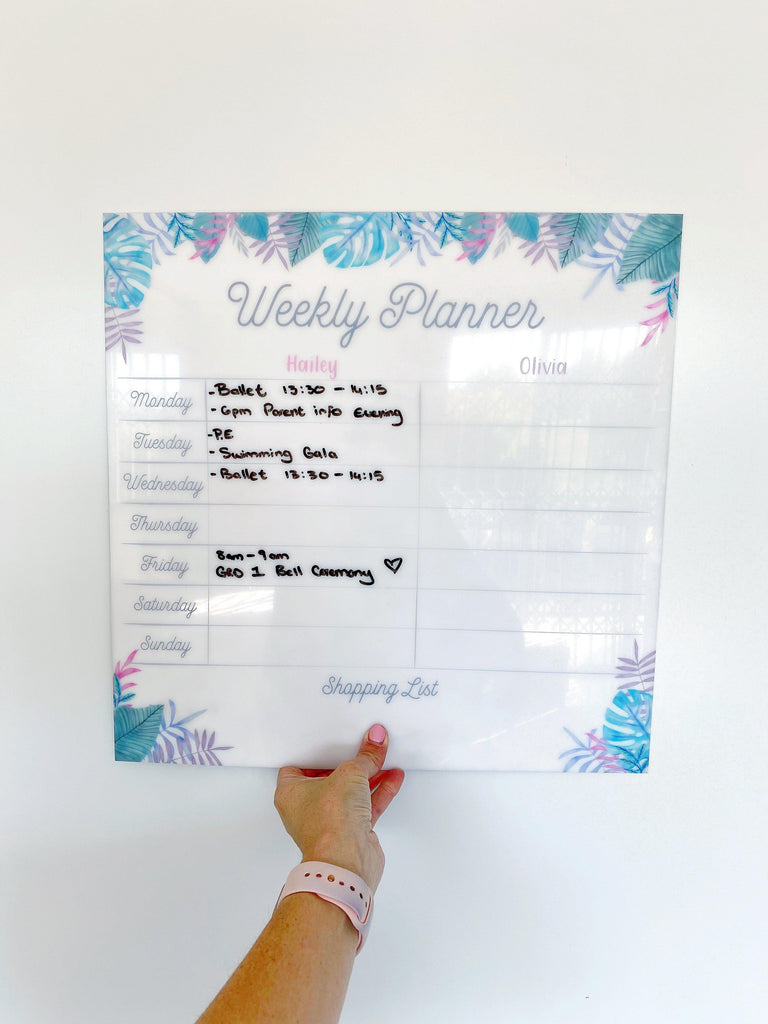 Weekly Planner
Hailey Olivia
Monday
-Ballet 13:30 - 14:15
-6pm Parent info Evening
Tuesday
-P.E
- Swimming Gala
Wednesday
- Ballet 13:30 - 14:15
Thursday
Friday
8am - 9am
GRD 1 Bell Ceremony ♡
Saturday
Sunday
Shopping List